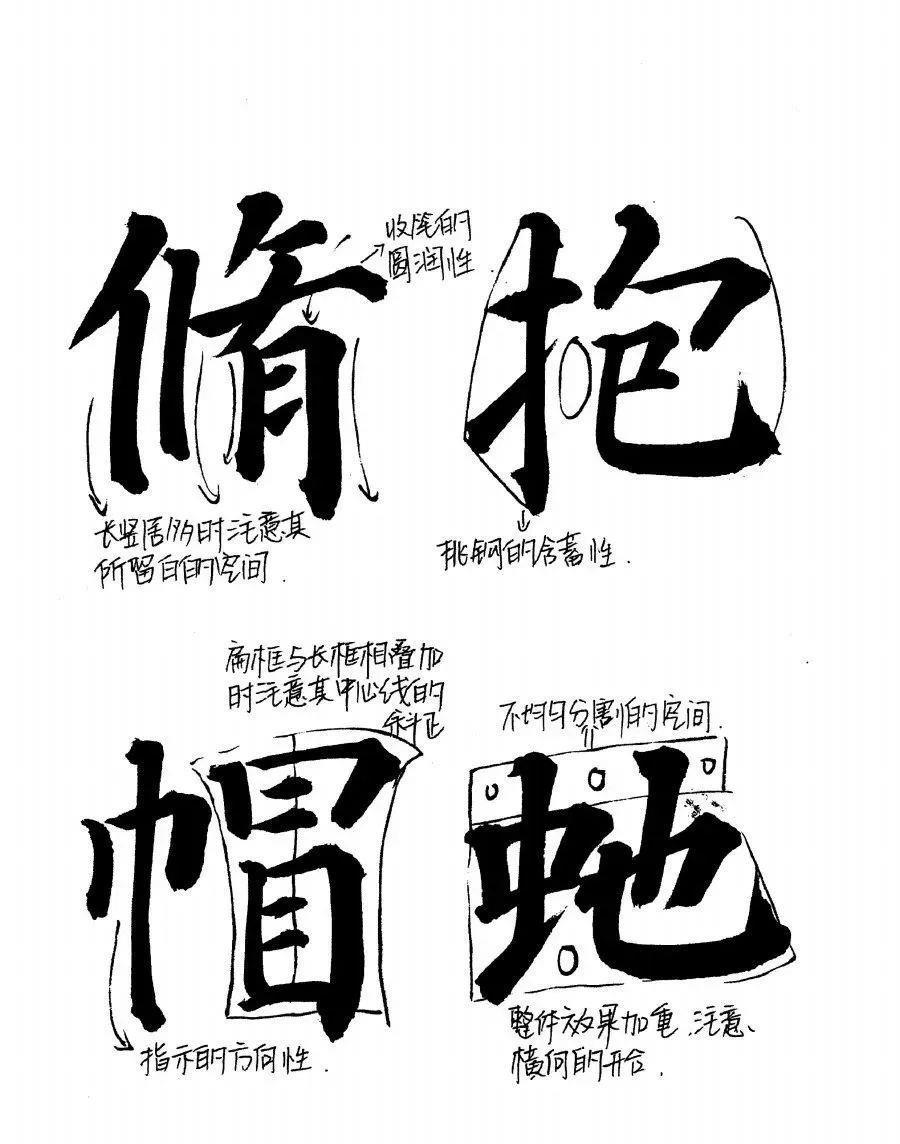 收笔的
圆润性
脩抱
长竖居多时注意其
所留白的空间.
挑钩的含蓄性.
扁框与长框相叠加
时注意其中心线的
斜正
不均匀分割的空间.
帽虵
指示的方向性.
整体效果加重,注意、
横向的开合.